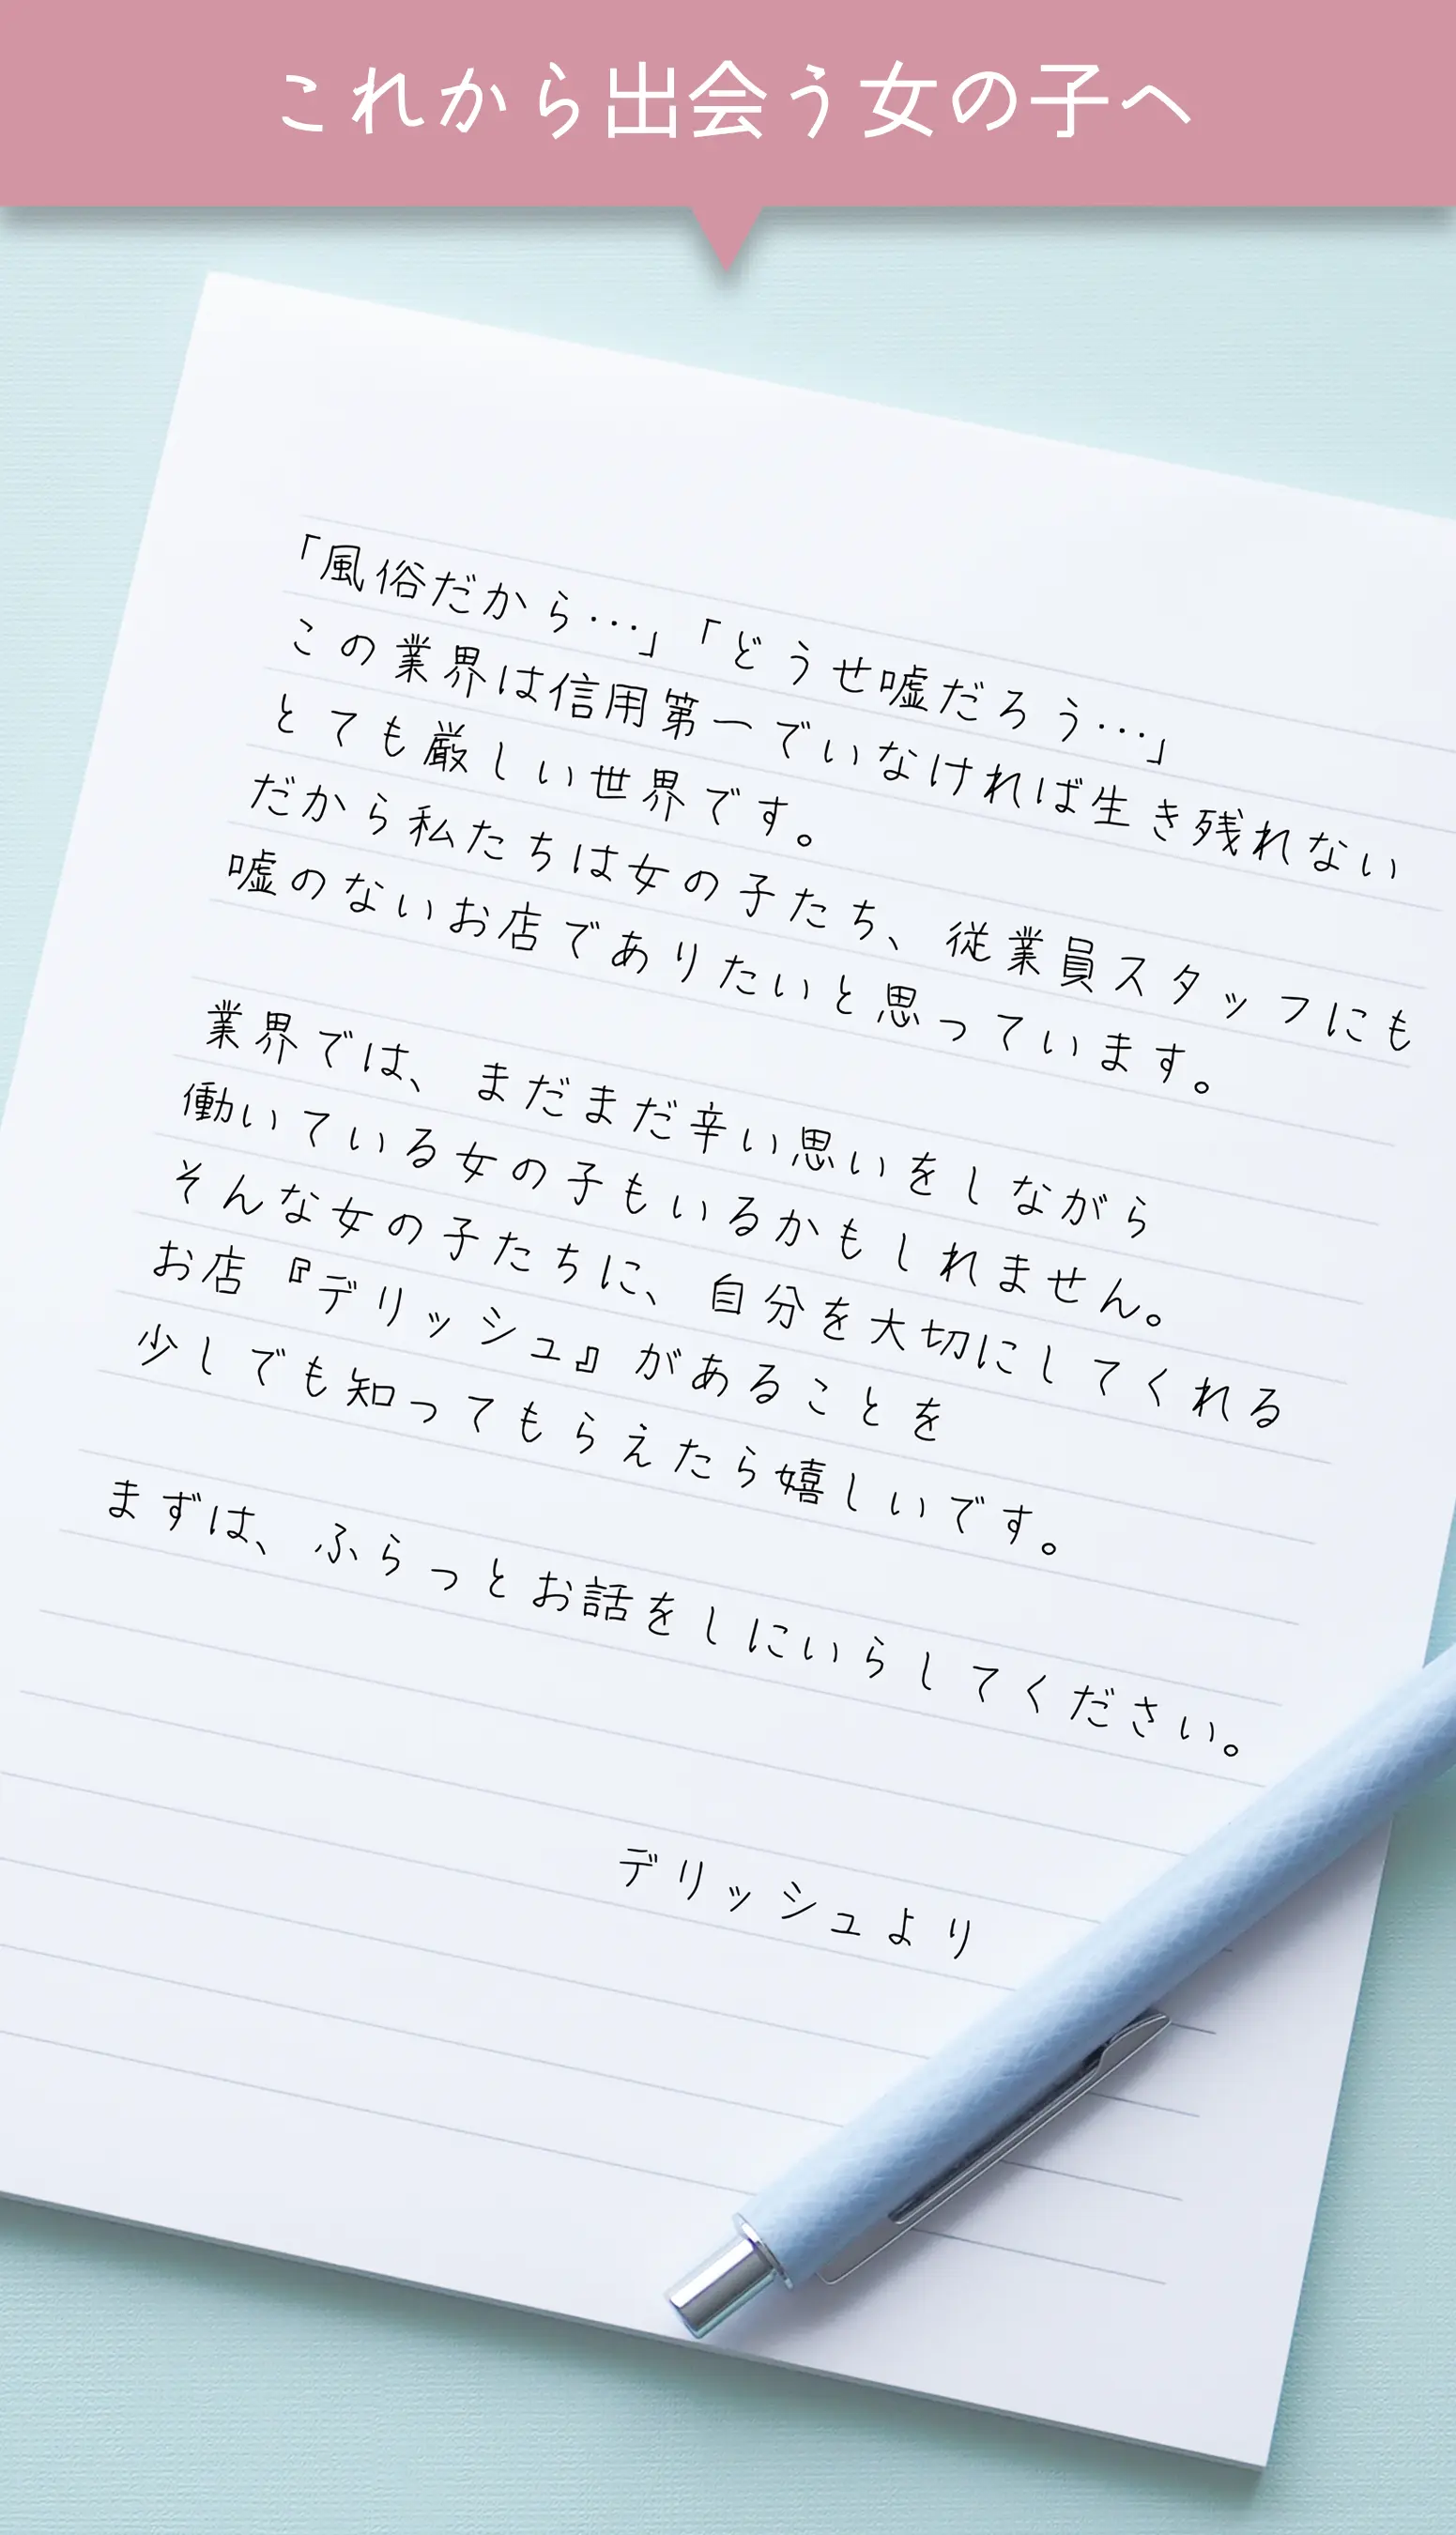 これから出会う女の子へ
「風俗だから…」「どうせ嘘だろう…」
この業界は信用第一でいなければ生き残れない
とても厳しい世界です。
だから私たちは女の子たち、従業員スタッフにも
嘘のないお店でありたいと思っています。
業界では、まだまだ辛い思いをしながら
働いている女の子もいるかもしれません。
そんな女の子たちに、自分を大切にしてくれる
お店『デリッシュ』があることを
少しでも知ってもらえたら嬉しいです。
まずは、ふらっとお話をしにいらしてください。
デリッシュより